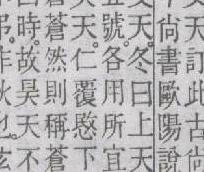 天訂此古尚
尙書歐陽說
天。冬曰上天
號。各用所宜
天。仁覆愍下
蒼然則稱蒼
時。故昊天不
弔